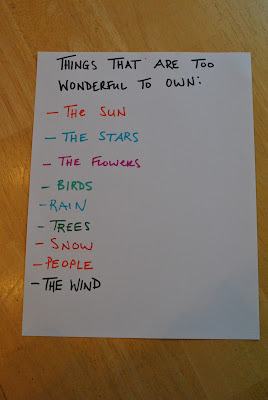 THINGS THAT ARE TOO
WONDERFUL TO OWN:
- THe SUN
- THE STARS
- THE FlOWERS
- BIRDS
- RAIN
- TREES
- SNOW
- PEOPLE
- THE WIND